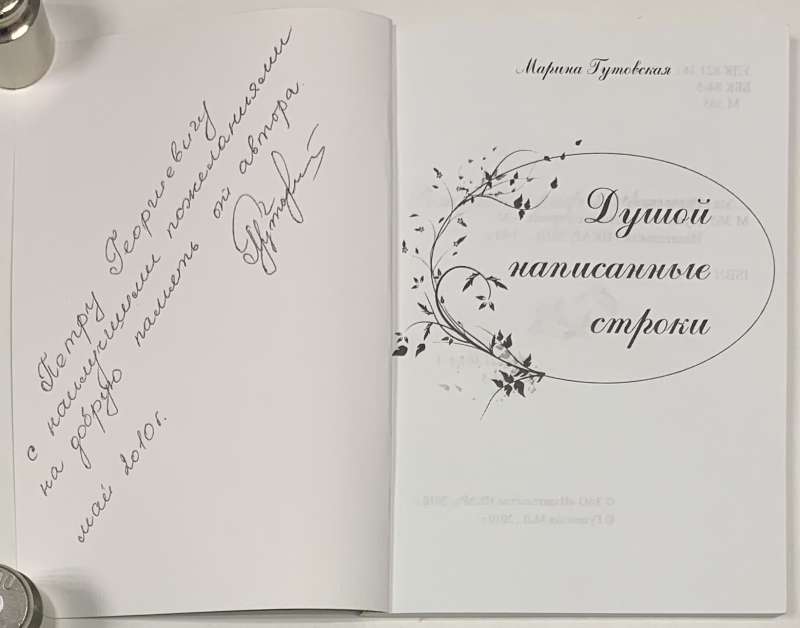 Петру Георгиевичу
с наилучшими пожеланиями
на добрую память от автора.
май 2010 г.
Марина Гутовская
Душой
написанные
строки